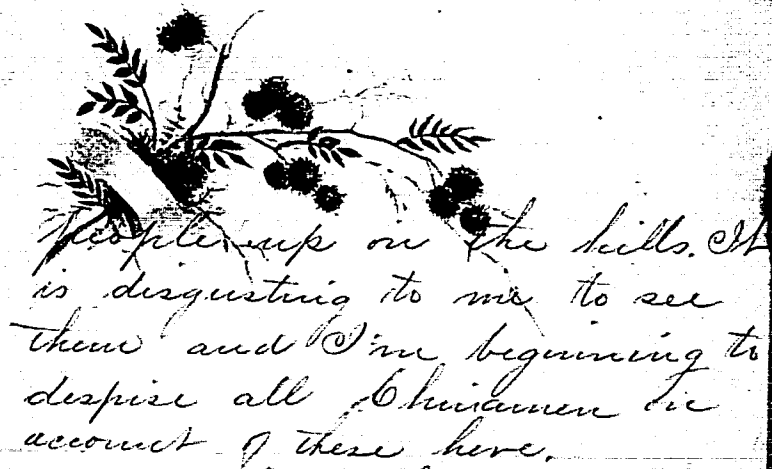 people up on the hills. It
is disgusting to me to see
them and I'm beginning to
despise all Chinamen on
account of these here.